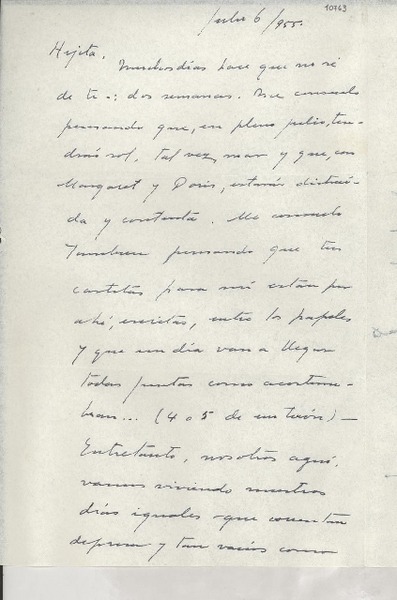 10763
Julio 6/955.
Hijita.
Muchos días hace que no sé
de ti.-; dos semanas. Me consuelo
pensando que, en pleno julio, ten-
drás sol, tal vez, mar y que, con
Margaret y Doris, estarás distraí-
da y contenta. Me consuelo
también pensando que tus
cartitas para mí están por
ahí, escritas, entre los papeles
y que un día van a llegar
todas juntas como acostum-
bran... (4 o 5 de un tirón) —
Entretanto, nosotros aquí,
vamos viviendo nuestros
días iguales que cuentan
deprisa y tan vacíos como